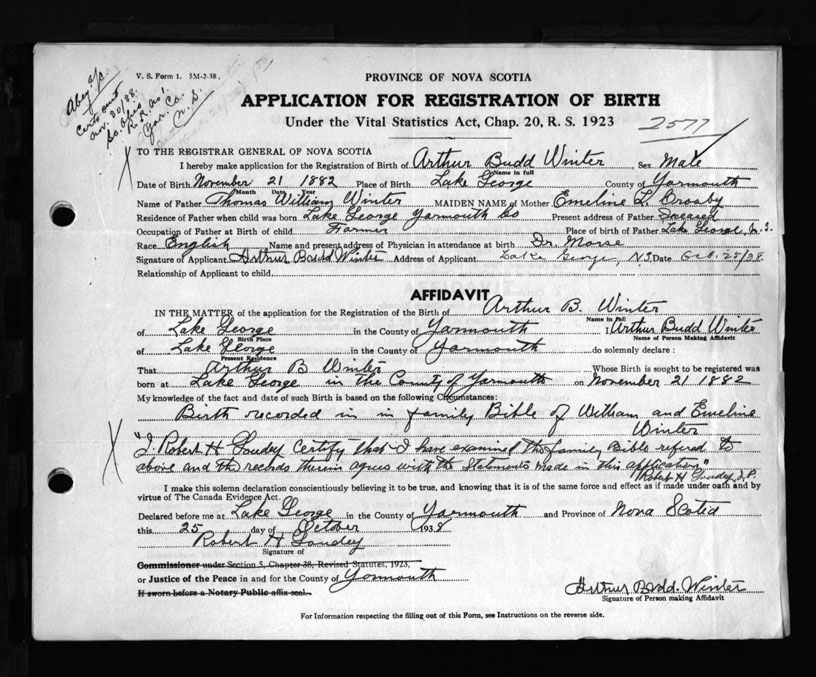 V. S. Form 1. 5M-2-38.
PROVINCE OF NOVA SCOTIA
APPLICATION FOR REGISTRATION OF BIRTH
Under the Vital Statistics Act, Chap. 20, R. S. 1923
2577
Nov. 30/38.
R. R. No 1.
Yar. Co.
N. S.
TO THE REGISTRAR GENERAL OF NOVA SCOTIA
I hereby make application for the Registration of Birth of Arthur Budd Winter Sex Male
Name in full
Date of Birth November 21 1882 Place of Birth Lake George County of Yarmouth
Month Date Year
Name of Father Thomas William Winter MAIDEN NAME of Mother Emeline L. Crosby
Residence of Father when child was born Lake George Yarmouth Co Present address of Father Deceased
Occupation of Father at Birth of child Farmer Place of birth of Father Lake George, N. S.
Race English Name and present address of Physician in attendance at birth Dr. Morse
Signature of Applicant Arthur Budd Winter Address of Applicant Lake George, N.S. Date Oct. 25/38.
Relationship of Applicant to child
AFFIDAVIT
IN THE MATTER of the application for the Registration of the Birth of Arthur B. Winter
Name in full
of Lake George in the County of Yarmouth I Arthur Budd Winter
Birth Place Name of Person Making Affidavit
of Lake George in the County of Yarmouth do solemnly declare:
Present Residence
That Arthur B Winter Whose Birth is sought to be registered was
born at Lake George in the County of Yarmouth on November 21 1882
My knowledge of the fact and date of such Birth is based on the following Circumstances:
Birth recorded in in family Bible of William and Emeline
Winter
"I Robert H Goudey Certify that I have examined the family Bible refered to
above and the records therein agrees with the statements made in this application"
Robert H Goudey J.P.
I make this solemn declaration conscientiously believing it to be true, and knowing that it is of the same force and effect as if made under oath and by
virtue of The Canada Evidence Act.
Declared before me at Lake George in the County of Yarmouth and Province of Nova Scotia
this 25 day of October 1938
Robert H Goudey
Signature of
Commissioner under Section 5, Chapter 38, Revised Statutes, 1923,
or Justice of the Peace in and for the County of Yarmouth
If sworn before a Notary Public affix seal.
Arthur Budd Winter
Signature of Person making Affidavit
For Information respecting the filling out of this Form, see Instructions on the reverse side.